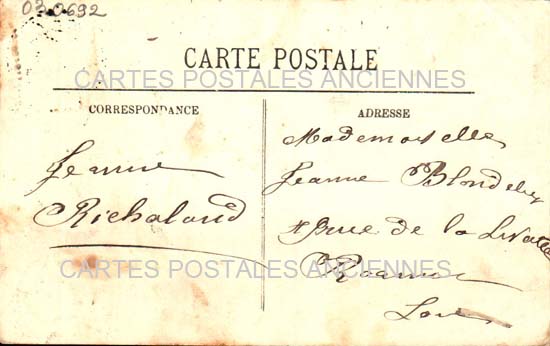 030692
CARTE POSTALE
CARTES POSTALES ANCIENNES
CORRESPONDANCE
Jeanne
Richaland
ADRESSE
Mademoiselle
Jeanne
rue de la
Roanne
Loire
CARTES POSTALES ANCIENNES